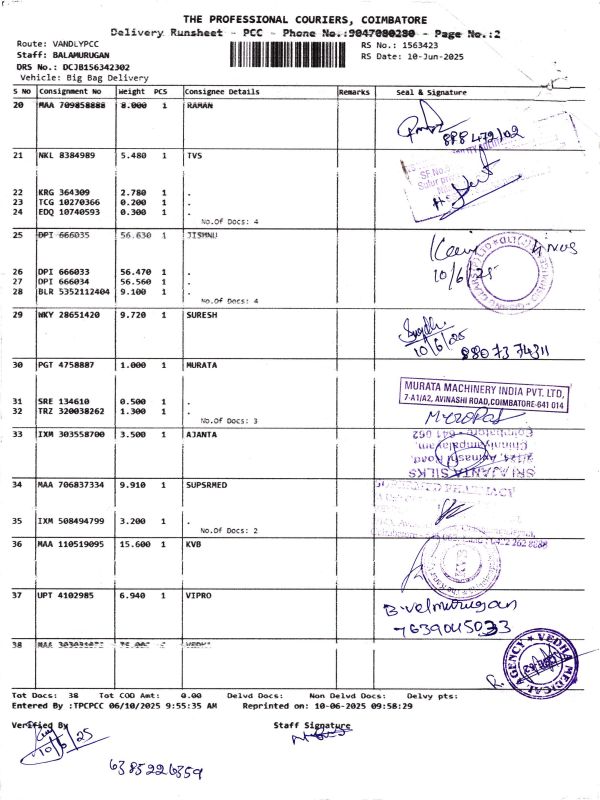 THE PROFESSIONAL COURIERS, COIMBATORE
Delivery Runsheet - PCC - Phone No.:9047080280 - Page No.:2
Route: VANDLYPCC
RS No.: 1563423
Staff: BALAMURUGAN
RS Date: 10-Jun-2025
DRS No.: DCJB156342302
Vehicle: Big Bag Delivery
S No Consignment No Weight PCS Consignee Details Remarks Seal & Signature
20 MAA 709858888 8.000 1 RAMAN
21 NKL 8384989 5.480 1 TVS
SF No.
22 KRG 364309 2.780 1 .
23 TCG 10270366 0.200 1 .
24 EDQ 10740593 0.300 1 .
No.Of Docs: 4
25 DPI 666035 56.630 1 JISHNU
10/6/25
26 DPI 666033 56.470 1 .
27 DPI 666034 56.560 1 .
28 BLR 5352112404 9.100 1 .
No.Of Docs: 4
29 WKY 28651420 9.720 1 SURESH
10/6/25
88073 74311
30 PGT 4758887 1.000 1 MURATA
MURATA MACHINERY INDIA PVT. LTD,
7-A1/A2, AVINASHI ROAD, COIMBATORE-641 014
31 SRE 134610 0.500 1 .
32 TRZ 320038262 1.300 1 .
No.Of Docs: 3
33 IXM 303558700 3.500 1 AJANTA
SRI AJANTA SILKS
Avinashi Road,
Chinniyampalayam,
Coimbatore - 641 062
34 MAA 706837334 9.910 1 SUPSRMED
35 IXM 508494799 3.200 1 .
No.Of Docs: 2
36 MAA 110519095 15.600 1 KVB
37 UPT 4102985 6.940 1 VIPRO
B.Velmurugan
7639045033
38 MAA
VEDHA MEDICAL AGENCY
Tot Docs: 38 Tot COD Amt: 0.00 Delvd Docs: Non Delvd Docs: Delvy pts:
Entered By :TPCPCC 06/10/2025 9:55:35 AM Reprinted on: 10-06-2025 09:58:29
Verified By
Staff Signature
10/6/25
6385226359